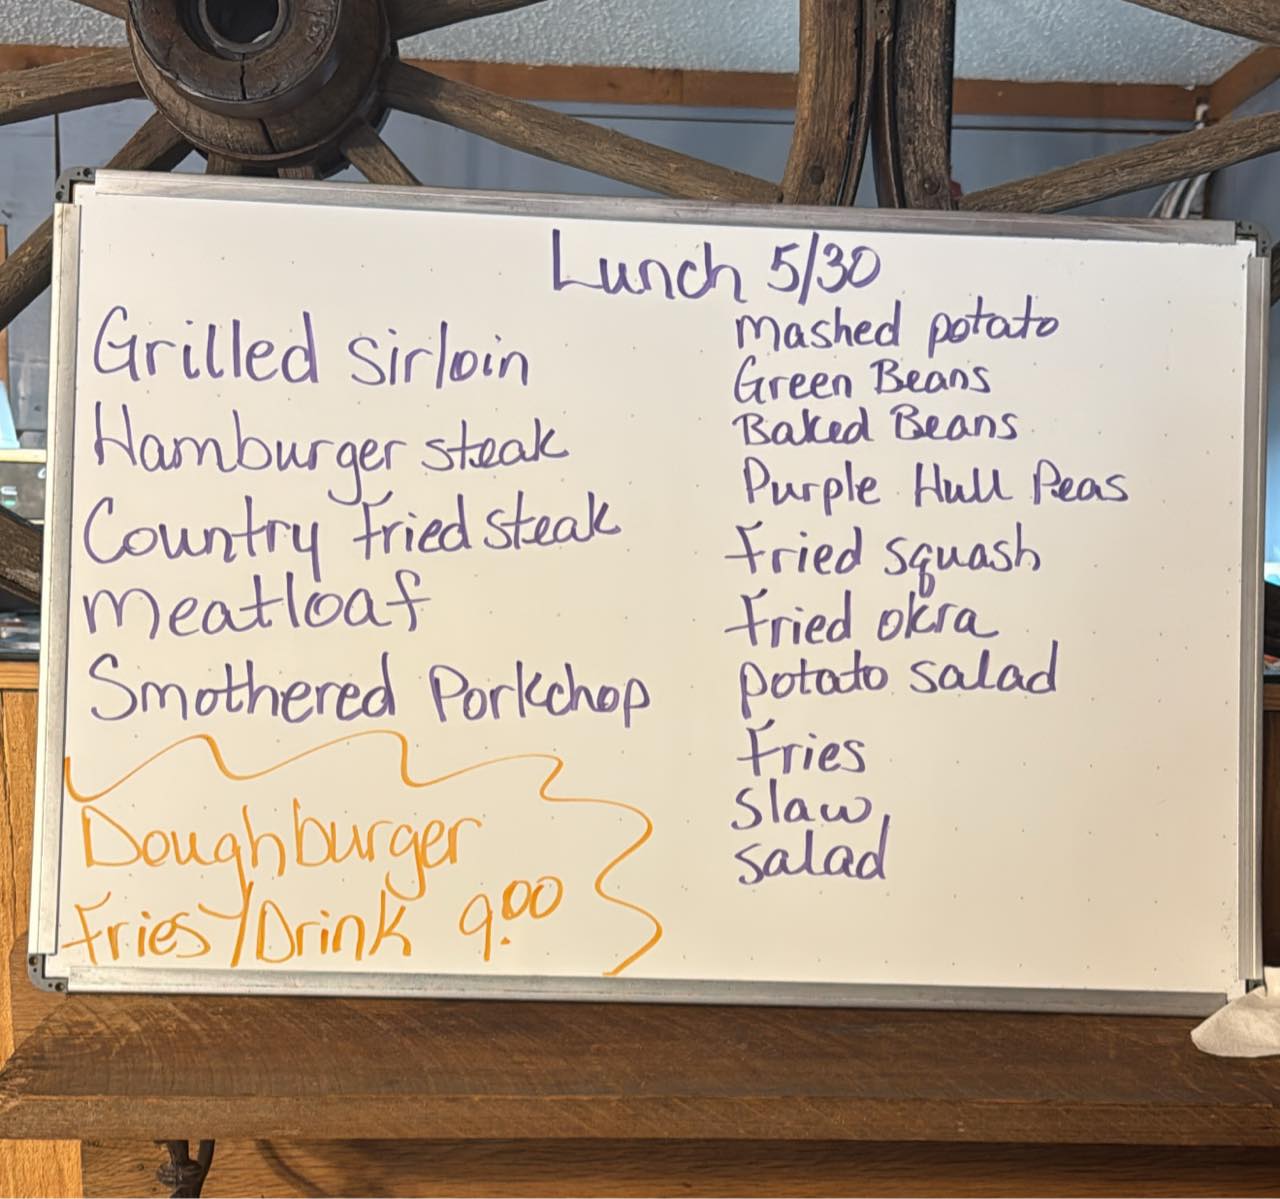 Lunch 5/30
Grilled sirloin
Hamburger steak
Country Fried steak
Meatloaf
Smothered Porkchop
Doughburger
Fries/Drink 9.00
Mashed potato
Green Beans
Baked Beans
Purple Hull Peas
Fried squash
Fried okra
potato salad
Fries
slaw
salad